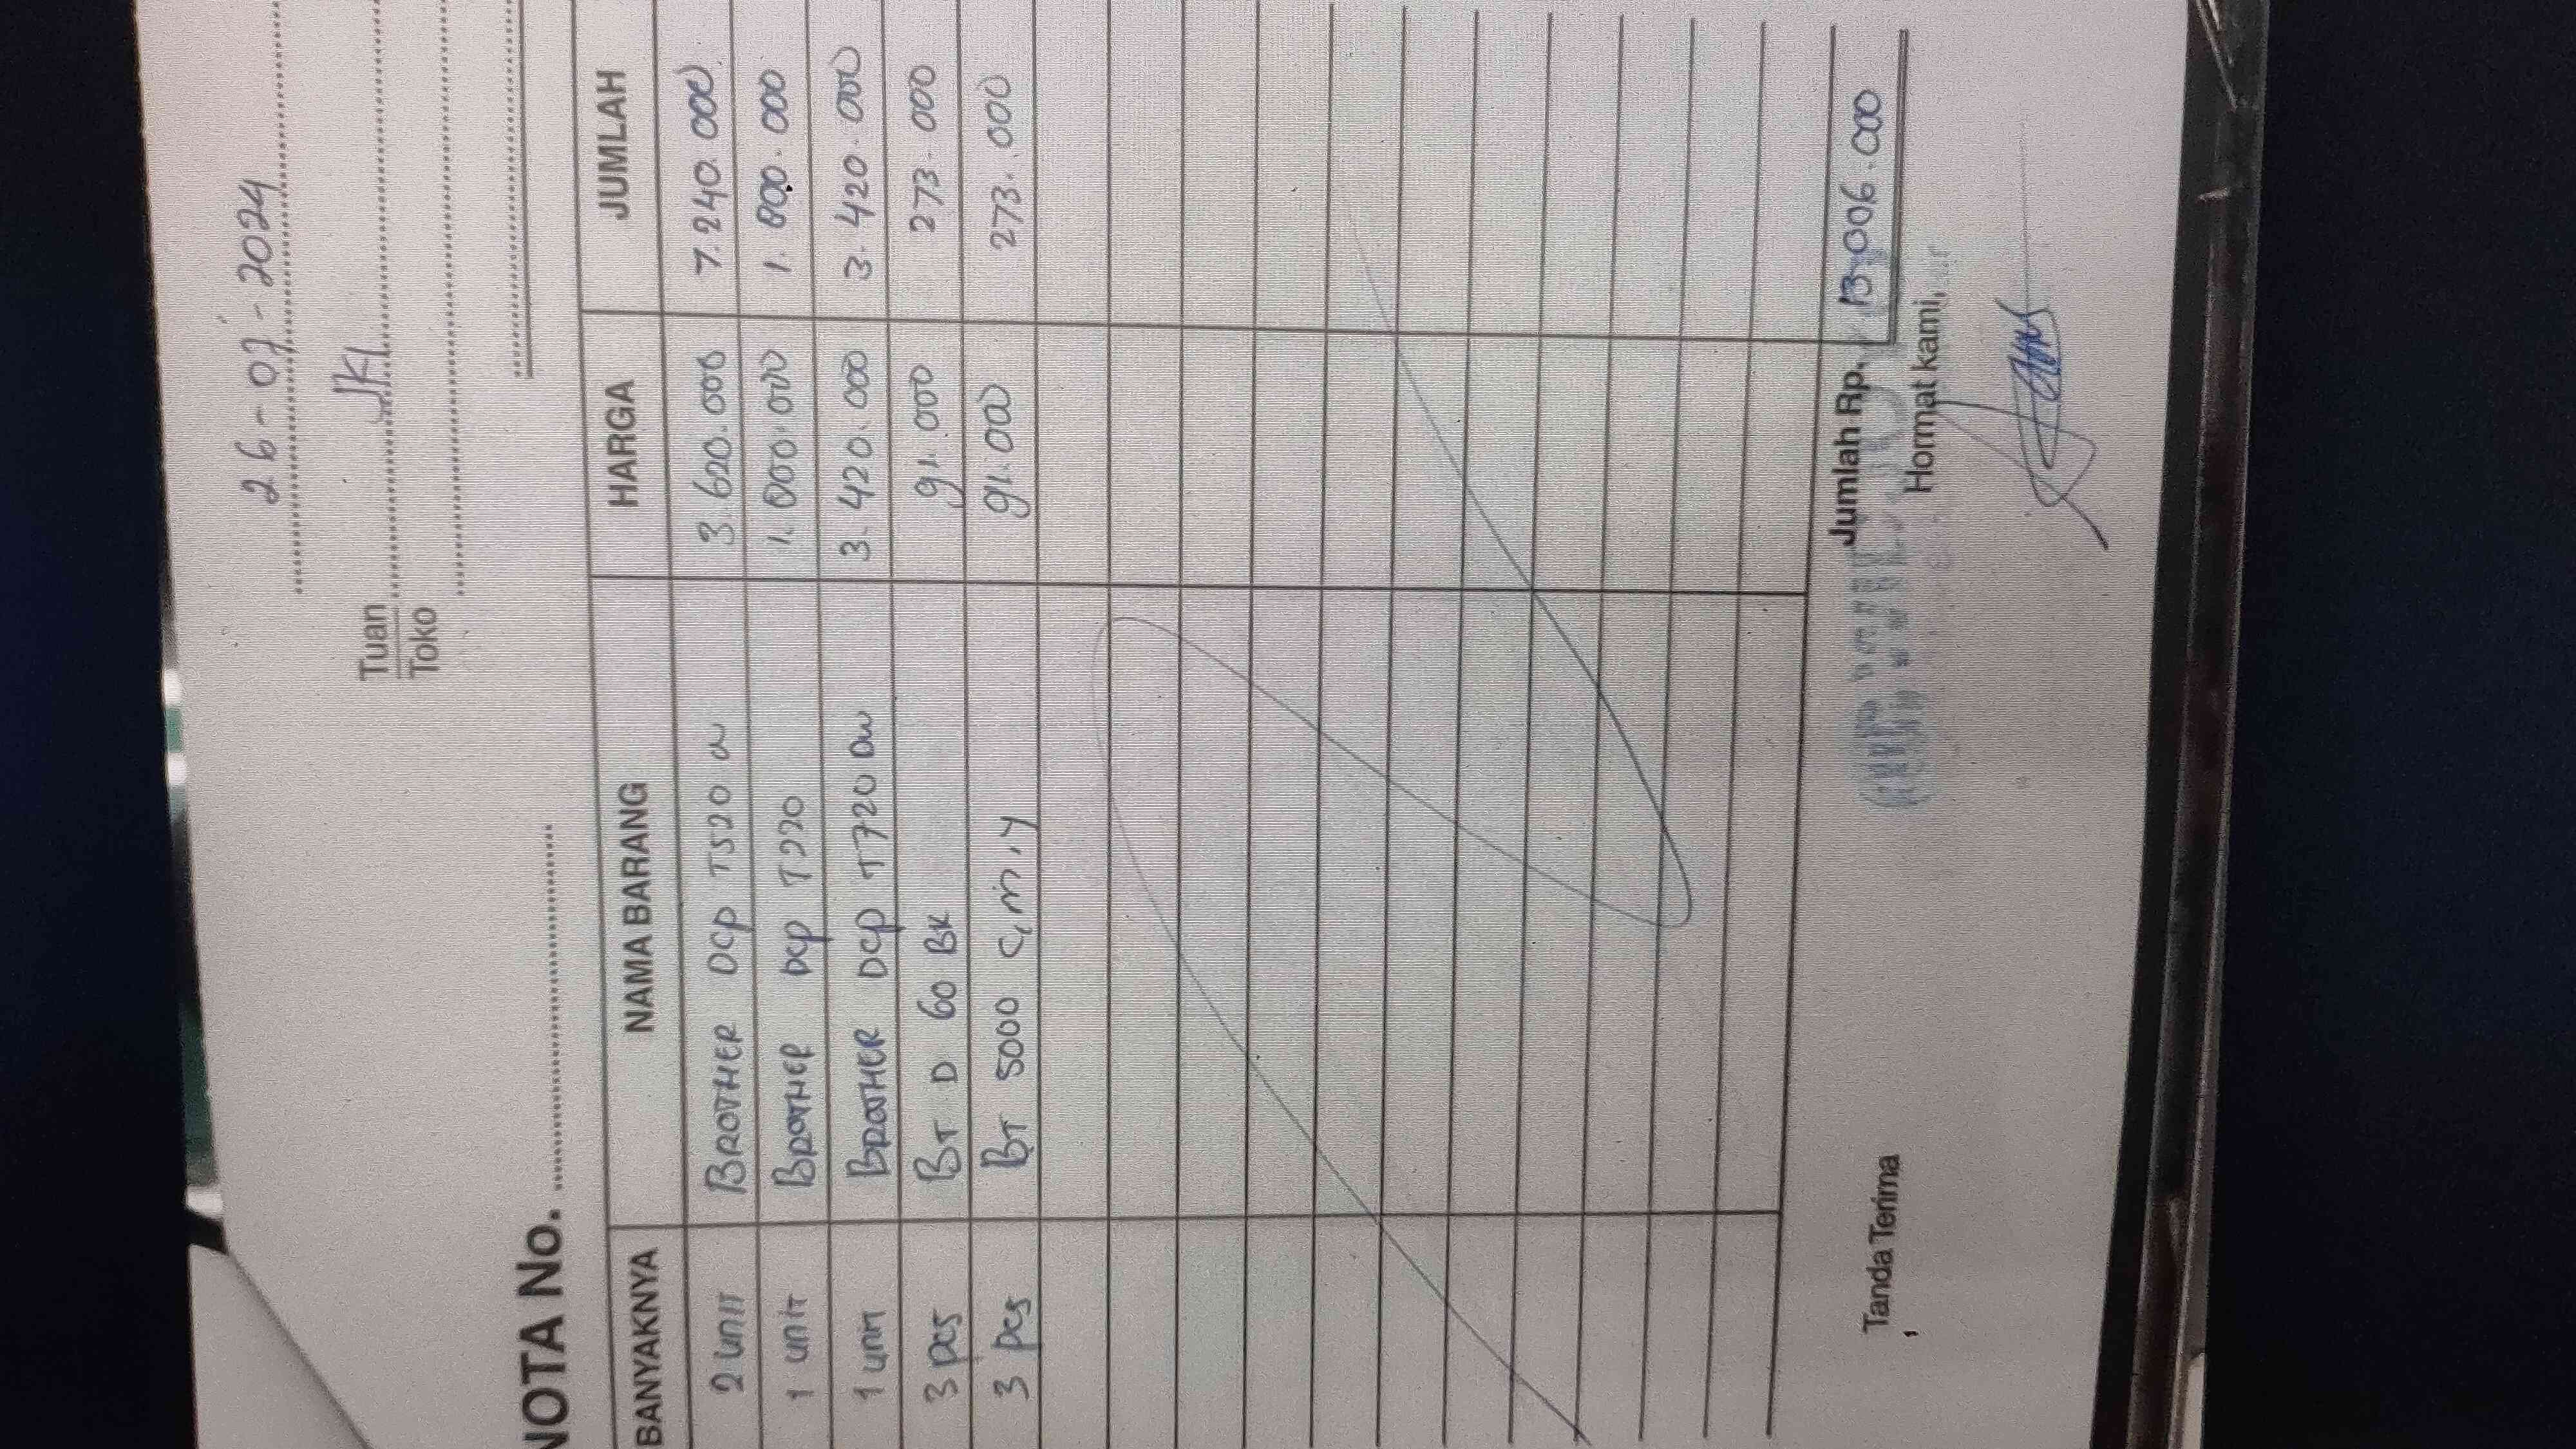 26 - 07 - 2024
Tuan
Toko
NOTA No.
BANYAKNYA NAMA BARANG HARGA JUMLAH
2 UNIT BROTHER DCP T520 W 3.620.000 7.240.000
1 UNIT BROTHER DCP T220 1.800.000 1.800.000
1 UNIT BROTHER DCP T720 DW 3.420.000 3.420.000
3 pcs BT D 60 BK 91.000 273.000
3 pcs BT 5000 C, M, Y 91.000 273.000
Jumlah Rp. 13.006.000
Tanda Terima Hormat kami,